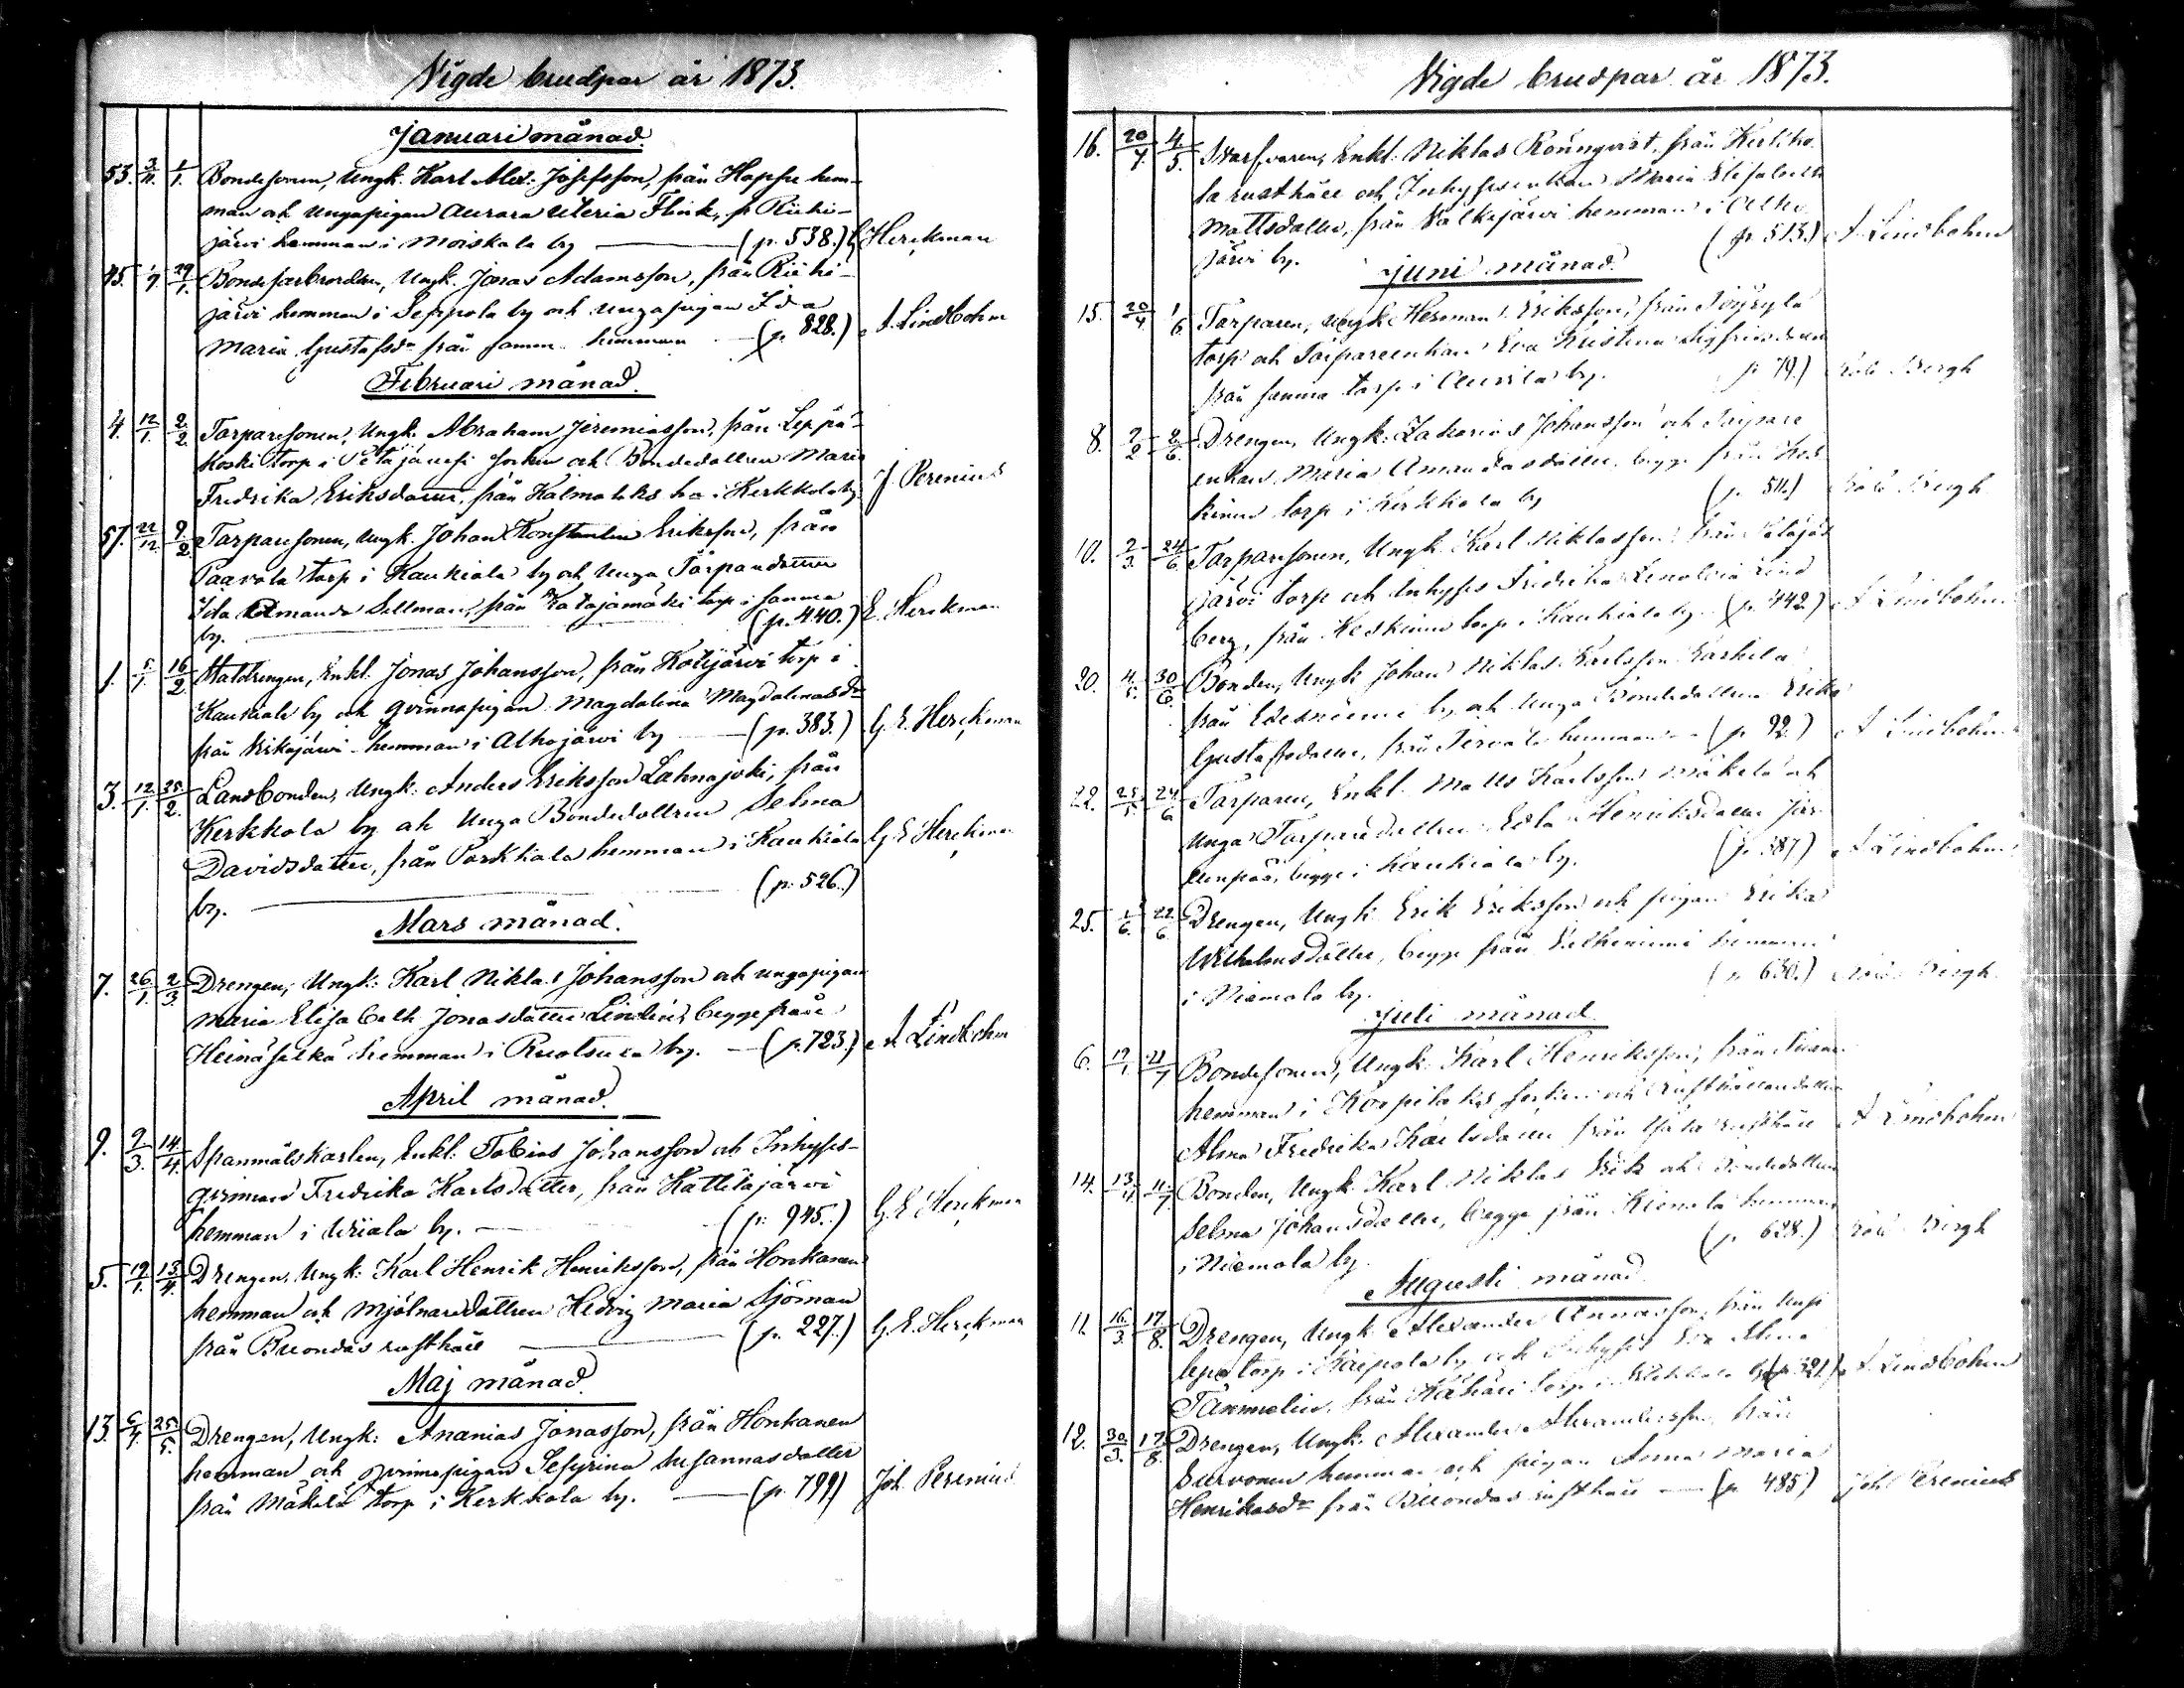 Vigde brudpar år 1873.
Januari månad.
53. 3/11 1/1. Bondesonen, Ungk. Karl Alex. Josefsson, från Hoppu hem-
man och Ungapigan Aurora Flink, fr. Riihi-
järvi hemman i Moiskala by (p. 538.) Herckman
29/1. Ungk. Jonas Adamsson, från Riihi-
järvi hemman i Seppola by och ungapigan Ida
Maria Gustafsdr från samma hemman (p. 828.) A. Lindbohm
Februari månad.
4. 12/1. 2/2. Torparesonen, Ungk. Abraham Jeremiasson, från Leppä-
koski torp i Petäjävesi socken och Bondedottren Maria
Fredrika Eriksdotter, från i Kerkkola by J. Perenius
57. 22/12 9/2. Torparesonen, Ungk. Johan Konstantin Eriksson, från
Paavola torp i Kaukiala by och Unga Torparedottren
Ida Amanda Sellman, från Katajamäki torp i samma
by. (p. 440.) E. Herckman
1. 5/1. 16/2. Enkl. Jonas Johansson, från Kotijärvi torp i
Kaukiala by och qvinnspigan Magdalena Magdalenasdr
från hemman i Alhojärvi by (p. 383.) G. E. Herckman
3. 12/1. 25/2. Landbonden, Ungk. Anders Eriksson Lahnajoki, från
Kerkkola by och Unga Bondedottren Selma
Davidsdotter, från Porkkala hemman i Kaukiala G. E. Herckman
by. (p. 526.)
Mars månad.
7. 26/1. 2/3. Drengen, Ungk. Karl Niklas Johansson och ungapigan
Maria Elisabeth Jonasdotter Lindén, begge från
Heinäselkä hemman i Ruotsula by. (p. 723.) A. Lindbohm
April månad.
9. 2/3. 14/4. Spanmålskarlen, Enkl. Tobias Johansson och Inhyses-
qvinnan Fredrika Karlsdotter, från
hemman i by. (p. 945.) G. E. Herckman
5. 19/1. 13/4. Drengen, Ungk. Karl Henrik Henriksson, från Honkanen
hemman och Mjölnaredottren Hedvig Maria Sjöman
från rusthåll (p. 227.) G. E. Herckman
Maj månad.
13. 25/5. Drengen, Ungk. Ananias Jonasson, från Honkanen
hemman och Susannasdotter
från Mäkelä torp i Kerkkola by. (p. 799) Joh. Perenius
Vigde brudpar år 1873.
16. 20/4. 4/5. Enkl. Niklas Rönnqvist, från
rusthåll och Inhysesenkan Maria Elisabeth
Mattsdotter, från Valkejärvi hemman i Alho-
järvi by. (p. 513.) A. Lindbohm
Juni månad.
15. 20/4. 1/6. Torparen, Ungk. Herman Eriksson, från
torp och Torpareenkan Eva Kristina
från samma torp i by. (p. 79.) Bergh
8. 2/2 2/6. Drengen, Ungk. Zakarias Johansson och Torpare
enkan Maria Amandasdotter, begge från Kos-
kinen torp i Kerkkola by (p. 511.) Bergh
10. 2/3. 24/6. Torparesonen, Ungk. Karl Niklasson från
järvi torp och Inhyses Fredrika Lind
berg, från Koskinen torp i Kaukiala by. (p. 442.) A. Lindbohm
20. 4/5. 30/6. Bonden, Ungk. Johan Niklas Karlsson
från by och Unga Bondedottren Erika
Gustafsdotter, från Tervala hemman (p. 92.) A. Lindbohm
22. 25/5. 24/6. Torparen, Enkl. Matts Karlsson Mäkelä och
Unga Torparedottren Henriksdotter
begge i Kaukiala by. (p. 387.) A. Lindbohm
25. 1/6. 22/6. Drengen, Ungk. Erik Eriksson och pigan Erika
Wilhelmsdotter, begge från hemman
i Niemola by. (p. 630.) Bergh
Juli månad.
6. Bondesonen, Ungk. Karl Henriksson, från
hemman i Korpilaks socken och Rusthållaredottren
Alma Fredrika Karlsdotter från rusthåll A. Lindbohm
14. 13/4. 11/7. Bonden, Ungk. Karl Niklas Erik och Bondedottren
Selma Johansdotter, begge från hemman
i Niemola by. (p. 628.) Bergh
Augusti månad.
11. 16/3. 17/8. Drengen, Ungk. Alexander Annasson, från
torp i Kaipola by och Inhyses Eva
från torp i (p. 321.) A. Lindbohm
12. 30/3. 17/8. Drengen, Ungk. Alexander Alexandersson, från
Survonen hemman och pigan Anna Maria
Henriksdr från rusthåll (p. 485) Joh. Perenius